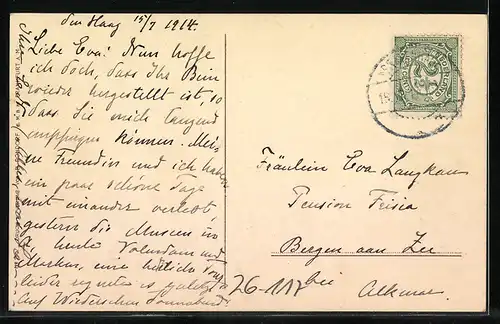 den Haag 15/7 1914.
Liebe Eva! Nun hoffe
ich doch, dass Ihr Bein
wieder hergestellt ist, so
dass Sie mich tanzend
empfangen können. Mei-
ne Freundin und ich haben
ein paar schöne Tage
mit einander verlebt,
gestern die Museen in
heute Volendam und
Marken, eine
leider regnete es zuletzt.
Auf Wiedersehen Sonnabend!
Fräulein Eva Langkau
Pension Frisia
Bergen aan Zee
bei
Alkmaar
26-117